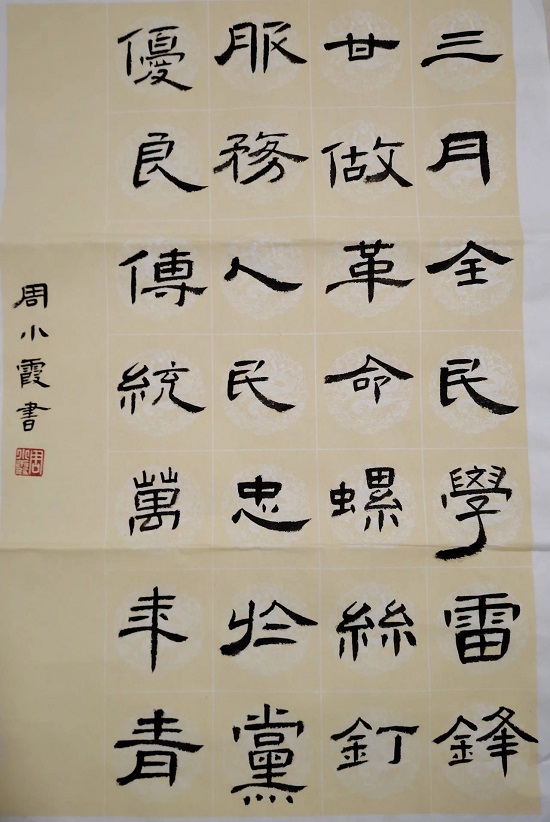 三月全民學雷鋒
廿做革命螺絲釘
服務人民忠於黨
優良傳統萬年青
周小霞書